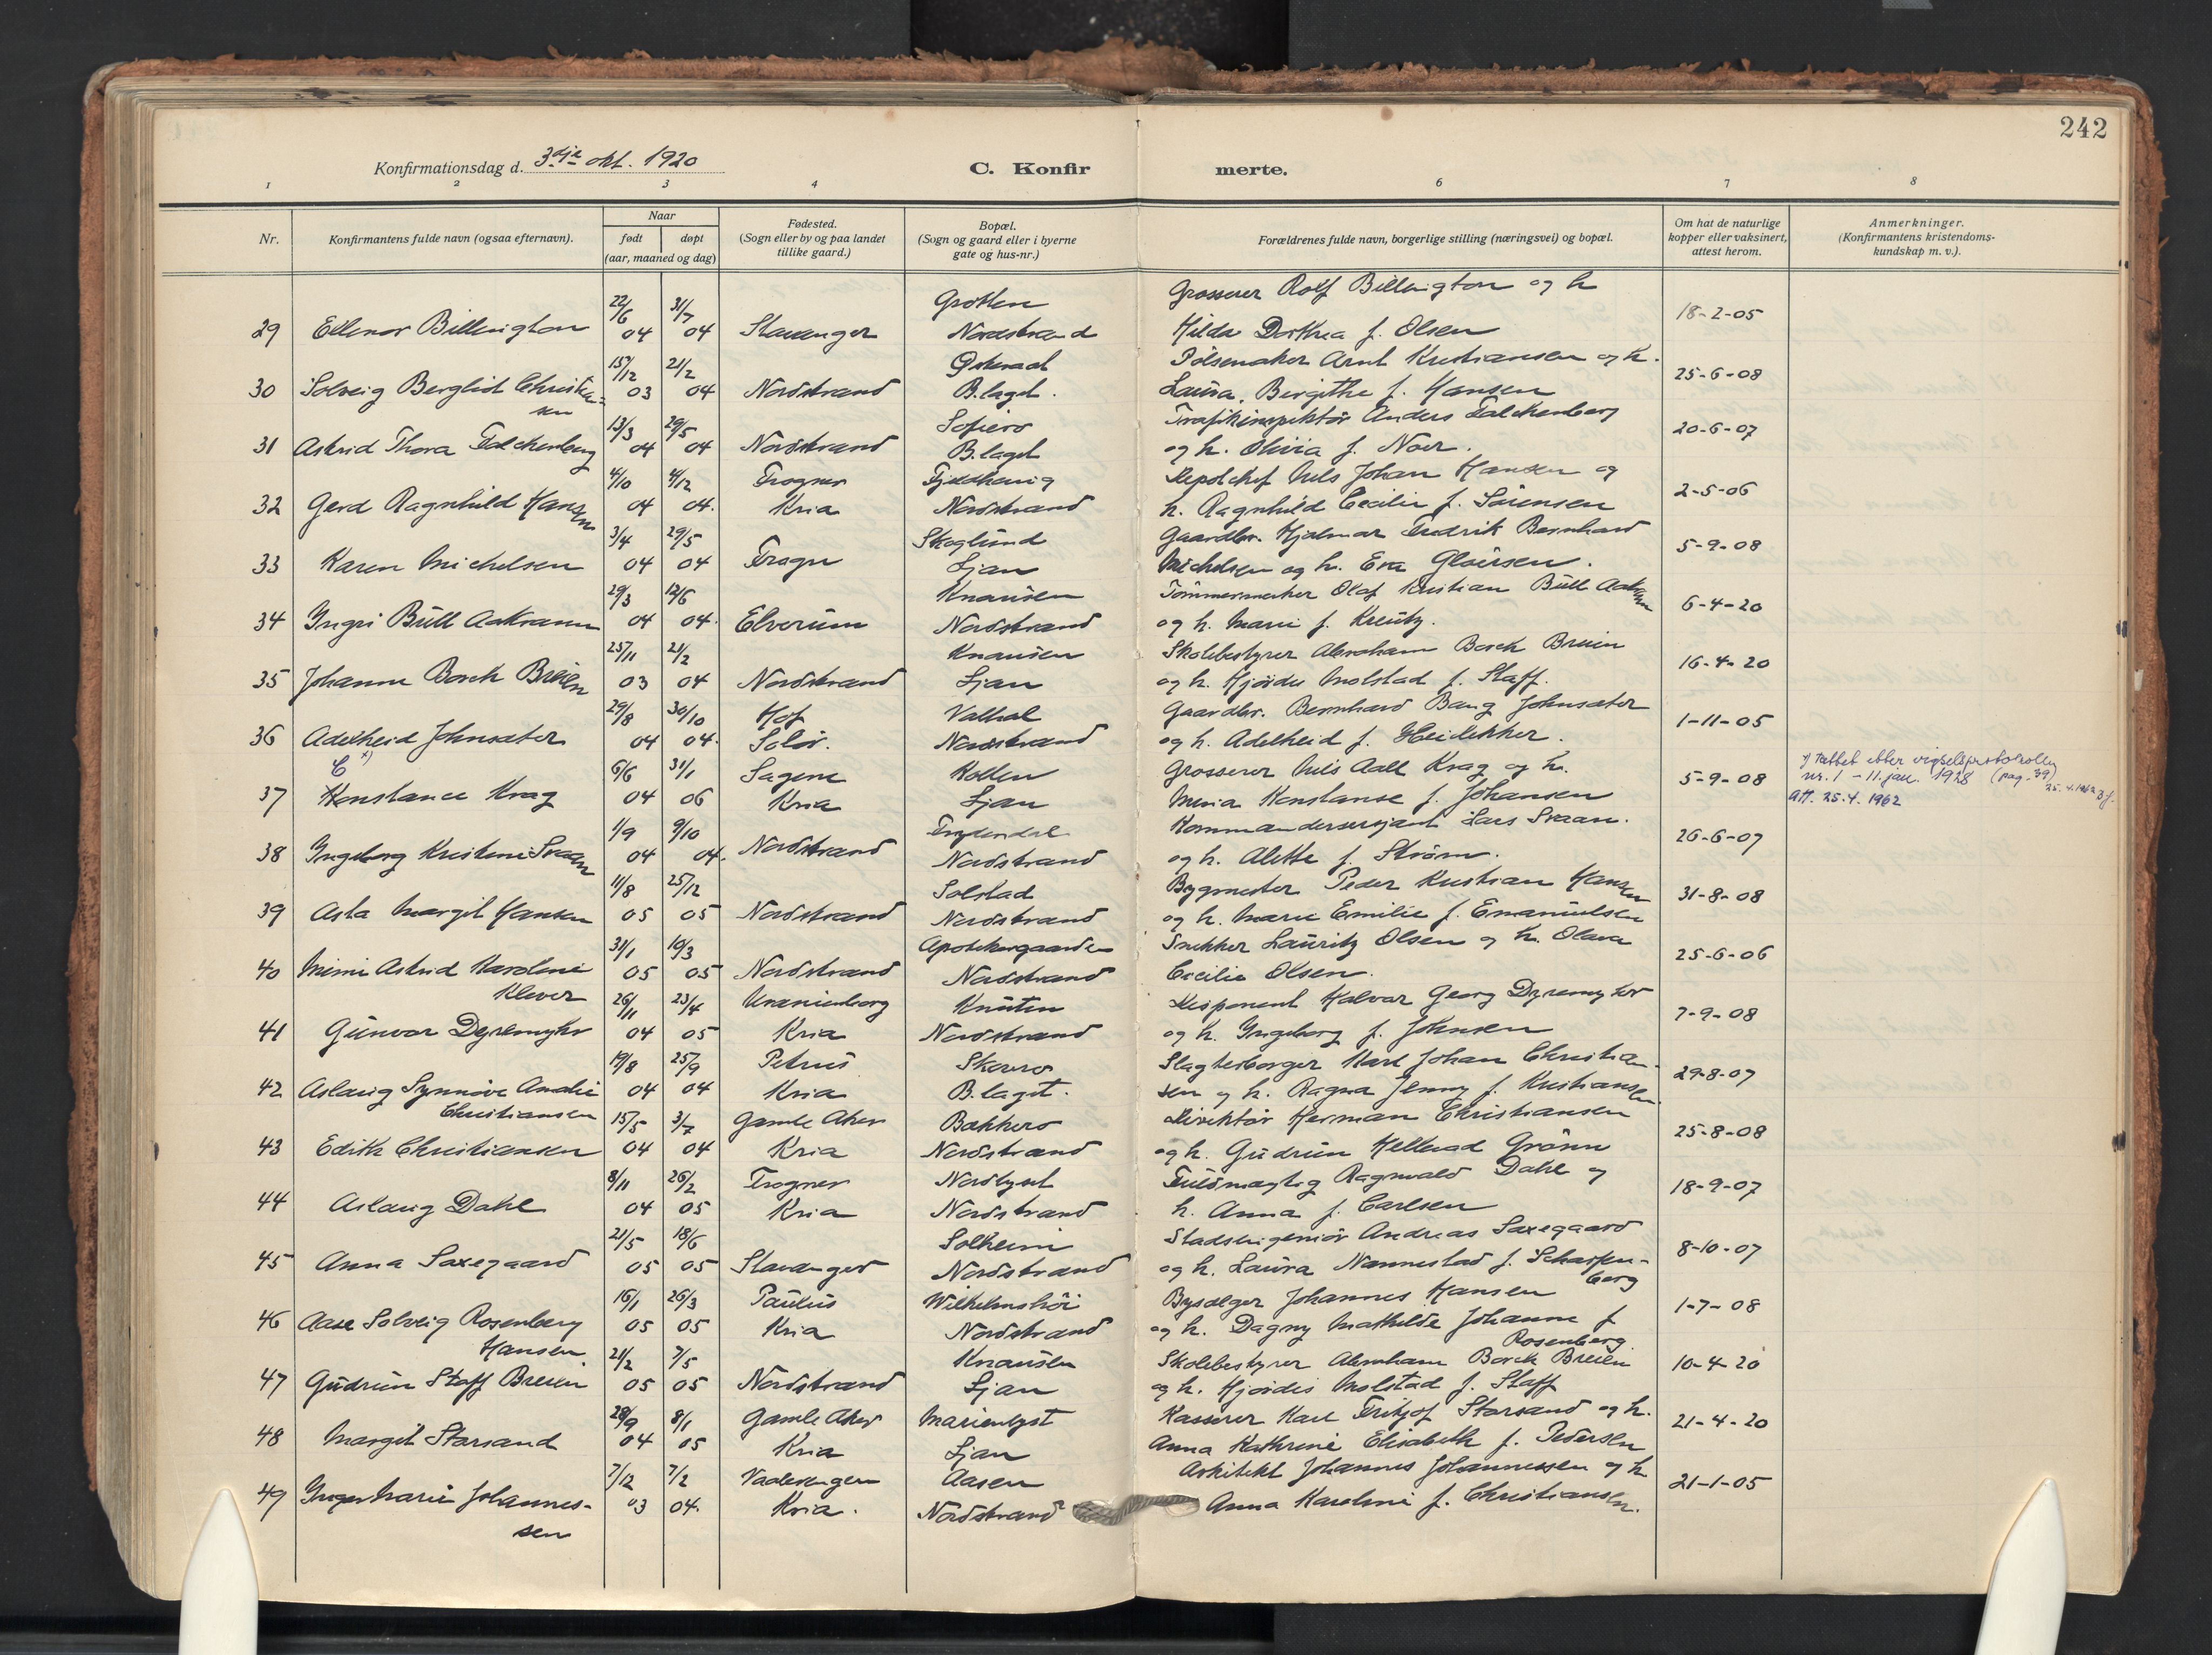 242
Konfirmationsdag d. 3dje okt. 1920
C. Konfirmerte.
1 2 3 4 6 7 8
Nr.
Konfirmantens fulde navn (ogsaa efternavn).
Naar
født døpt
(aar, maaned og dag)
Fødested.
(Sogn eller by og paa landet
tillike gaard.)
Bopæl.
(Sogn og gaard eller i byerne
gate og hus-nr.)
Forældrenes fulde navn, borgerlige stilling (næringsvei) og bopæl.
Om hat de naturlige
kopper eller vaksinert,
attest herom.
Anmerkninger.
(Konfirmantens kristendoms-
kundskap m. v.).
22/6 31/7 Grotten Grosserer Rolf Billington og h 18-2-05
29 Ellenor Billington 04 04 Stavanger Nordstrand Hilda Dorthea f. Olsen
15/12 21/2 Pølsemaker Arnt Kristiansen og h. 25-6-08
30 Solveig Bergliot Christian- 03 04 Nordstrand B.laget. Laura Birgitte f. Hansen
sen
13/3 29/5 Sofiero Trafikinspektør Anders Falckenberg 20-6-07
31 Astrid Thora Falckenberg 04 04 Nordstrand B.laget og h. Olivia f. Noer.
4/10 4/12 Frogner Fjeldheim Depotchef Nils Johan Hansen og 2-5-06
32 Gerd Ragnhild Hansen 04 04. Kria Nordstrand h. Ragnhild Cecilie f. Sørensen
3/4 29/5 Skoglund Gaardbr. Hjalmar Fredrik Bernhard 5-9-08
33 Karen Michelsen 04 04 Frogn Ljan Michelsen og h. Eva Gløersen.
29/3 12/6 Knausen Tømmermerker Olaf Kristian Bull Aakrann 6-4-20
34 Yngri Bull Aakrann 04 04. Elverum Nordstrand og h. Marie f. Kreutz.
25/11 21/2 Knausen Skolebestyrer Abraham Borch Breien 16-4-20
35 Johanne Borch Breien 03 04 Nordstrand Ljan og h. Hjørdis Molstad f. Staff.
29/8 30/10 Hof Valhal Gaardbr. Bernhard Bang Johnsæter 1-11-05
36 Adelheid Johnsæter 04 04. Solør. Nordstrand og h. Adelheid f. Heidekker.
C x) 6/6 31/1 Sagene Holten Grosserer Nils Aall Krag og h. 5-9-08 x) Rettet etter vigselsprotokollen
37 Konstance Krag 04 06 Kria Ljan Maria Konstanse f. Johansen nr. 1 - 11. jan. 1928 (pag. 39)
Att. 25.4. 1962 25.4.1962
1/9 9/10 Frydendal Kommandersersjant Lars Svaan. 26-6-07
38 Ingeborg Kristine Svaan 04 04. Nordstrand Nordstrand og h. Alette f. Strøm.
11/8 25/12 Solstad Bygmester Peder Kristian Hansen 31-8-08
39 Asta Margit Hansen 05 05 Nordstrand Nordstrand og h. Marie Emilie f. Emanuelsen
31/1 10/3 Apotekergaarden Snekker Lauritz Olsen og h. Olava 25-6-06
40 Mimi Astrid Karoline 05 05 Nordstrand Nordstrand Cecilie Olsen.
Klever
26/11 23/4 Uranienborg Knuten Disponent Halvar Georg Dyremyhr 7-9-08
41 Gunvor Dyremyhr 04 05 Kria Nordstrand og h. Ingeborg f. Johnsen
19/8 25/9 Petrus Skovro Slagterborger Karl Johan Christian- 29-8-07
42 Aslaug Synnøve Amalie 04 04 Kria B.laget. sen og h. Ragna Jenny f. Kristiansen
Christiansen
15/5 3/7 Gamle Aker Bakkero Direktør Herman Christiansen 25-8-08
43 Edith Christiansen 04 04 Kria Nordstrand og h. Gudrun Hellerad Grönn
8/11 26/2 Frogner Nordlyset Fuldmægtig Ragnvald Dahl og 18-9-07
44 Aslaug Dahl 04 05 Kria Nordstrand h. Anna f. Carlsen
21/5 18/6 Solheim Stadsingeniør Andreas Saxegaard 8-10-07
45 Anna Saxegaard 05 05 Stavanger Nordstrand og h. Laura Nannestad f. Scharffen-
berg
16/1 26/3 Paulus Wilhelmshøi Bysælger Johannes Hansen 1-7-08
46 Aase Solveig Rosenberg 05 05 Kria Nordstrand og h. Dagny Mathilde Johanne f
Hansen. Rosenberg
21/2 7/5 Knausen Skolebestyrer Abraham Borch Breien 10-4-20
47 Gudrun Staff Breien 05 05 Nordstrand Ljan og h. Hjørdis Molstad f. Staff
28/9 8/1 Gamle Aker Marienlyst Kasserer Karl Fritjof Storsand og h. 21-4-20
48 Margit Storsand 04 05 Kria Ljan Anna Kathrine Elisabeth f. Pedersen
7/12 7/2 Vaalerengen Aasen Arkitekt Johannes Johannessen og h 21-1-05
49 Inger Marie Johannes- 03 04. Kria. Nordstrand Anna Karoline f. Christiansen.
sen